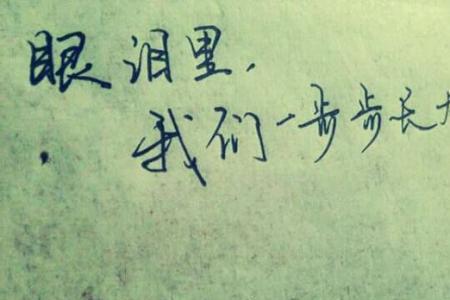 眼泪里,
我们一步步长大